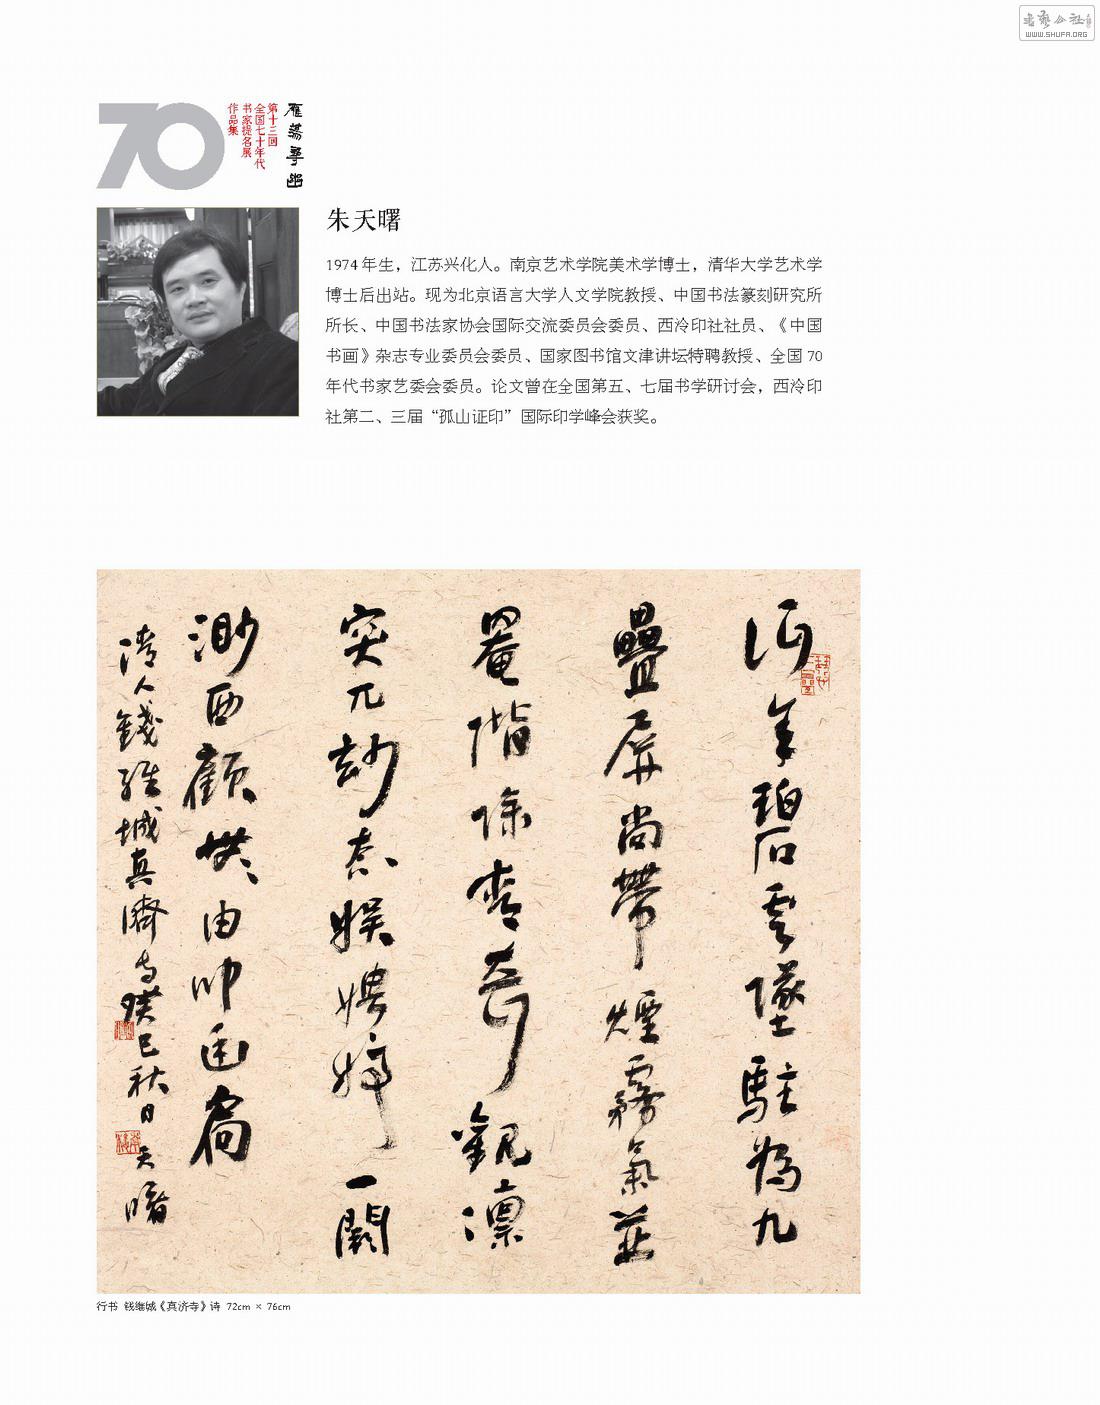 书艺公社
WWW.SHUFA.ORG
70
雁蕩尋幽
第十三回
全国七十年代
书家提名展
作品集
朱天曙
1974 年生，江苏兴化人。南京艺术学院美术学博士，清华大学艺术学
博士后出站。现为北京语言大学人文学院教授、中国书法篆刻研究所
所长、中国书法家协会国际交流委员会委员、西泠印社社员、《中国
书画》杂志专业委员会委员、国家图书馆文津讲坛特聘教授、全国 70
年代书家艺委会委员。论文曾在全国第五、七届书学研讨会，西泠印
社第二、三届“孤山证印”国际印学峰会获奖。
何年碧雲墜駐為九
疊屏尚帶煙霧氣並
罨階除青奇觀凜
突兀妙態娛娉婷一闕
渺西顧無由叩函扃
清人錢維城真濟寺癸巳秋日天曙
行书 钱维城《真济寺》诗 72cm × 76cm